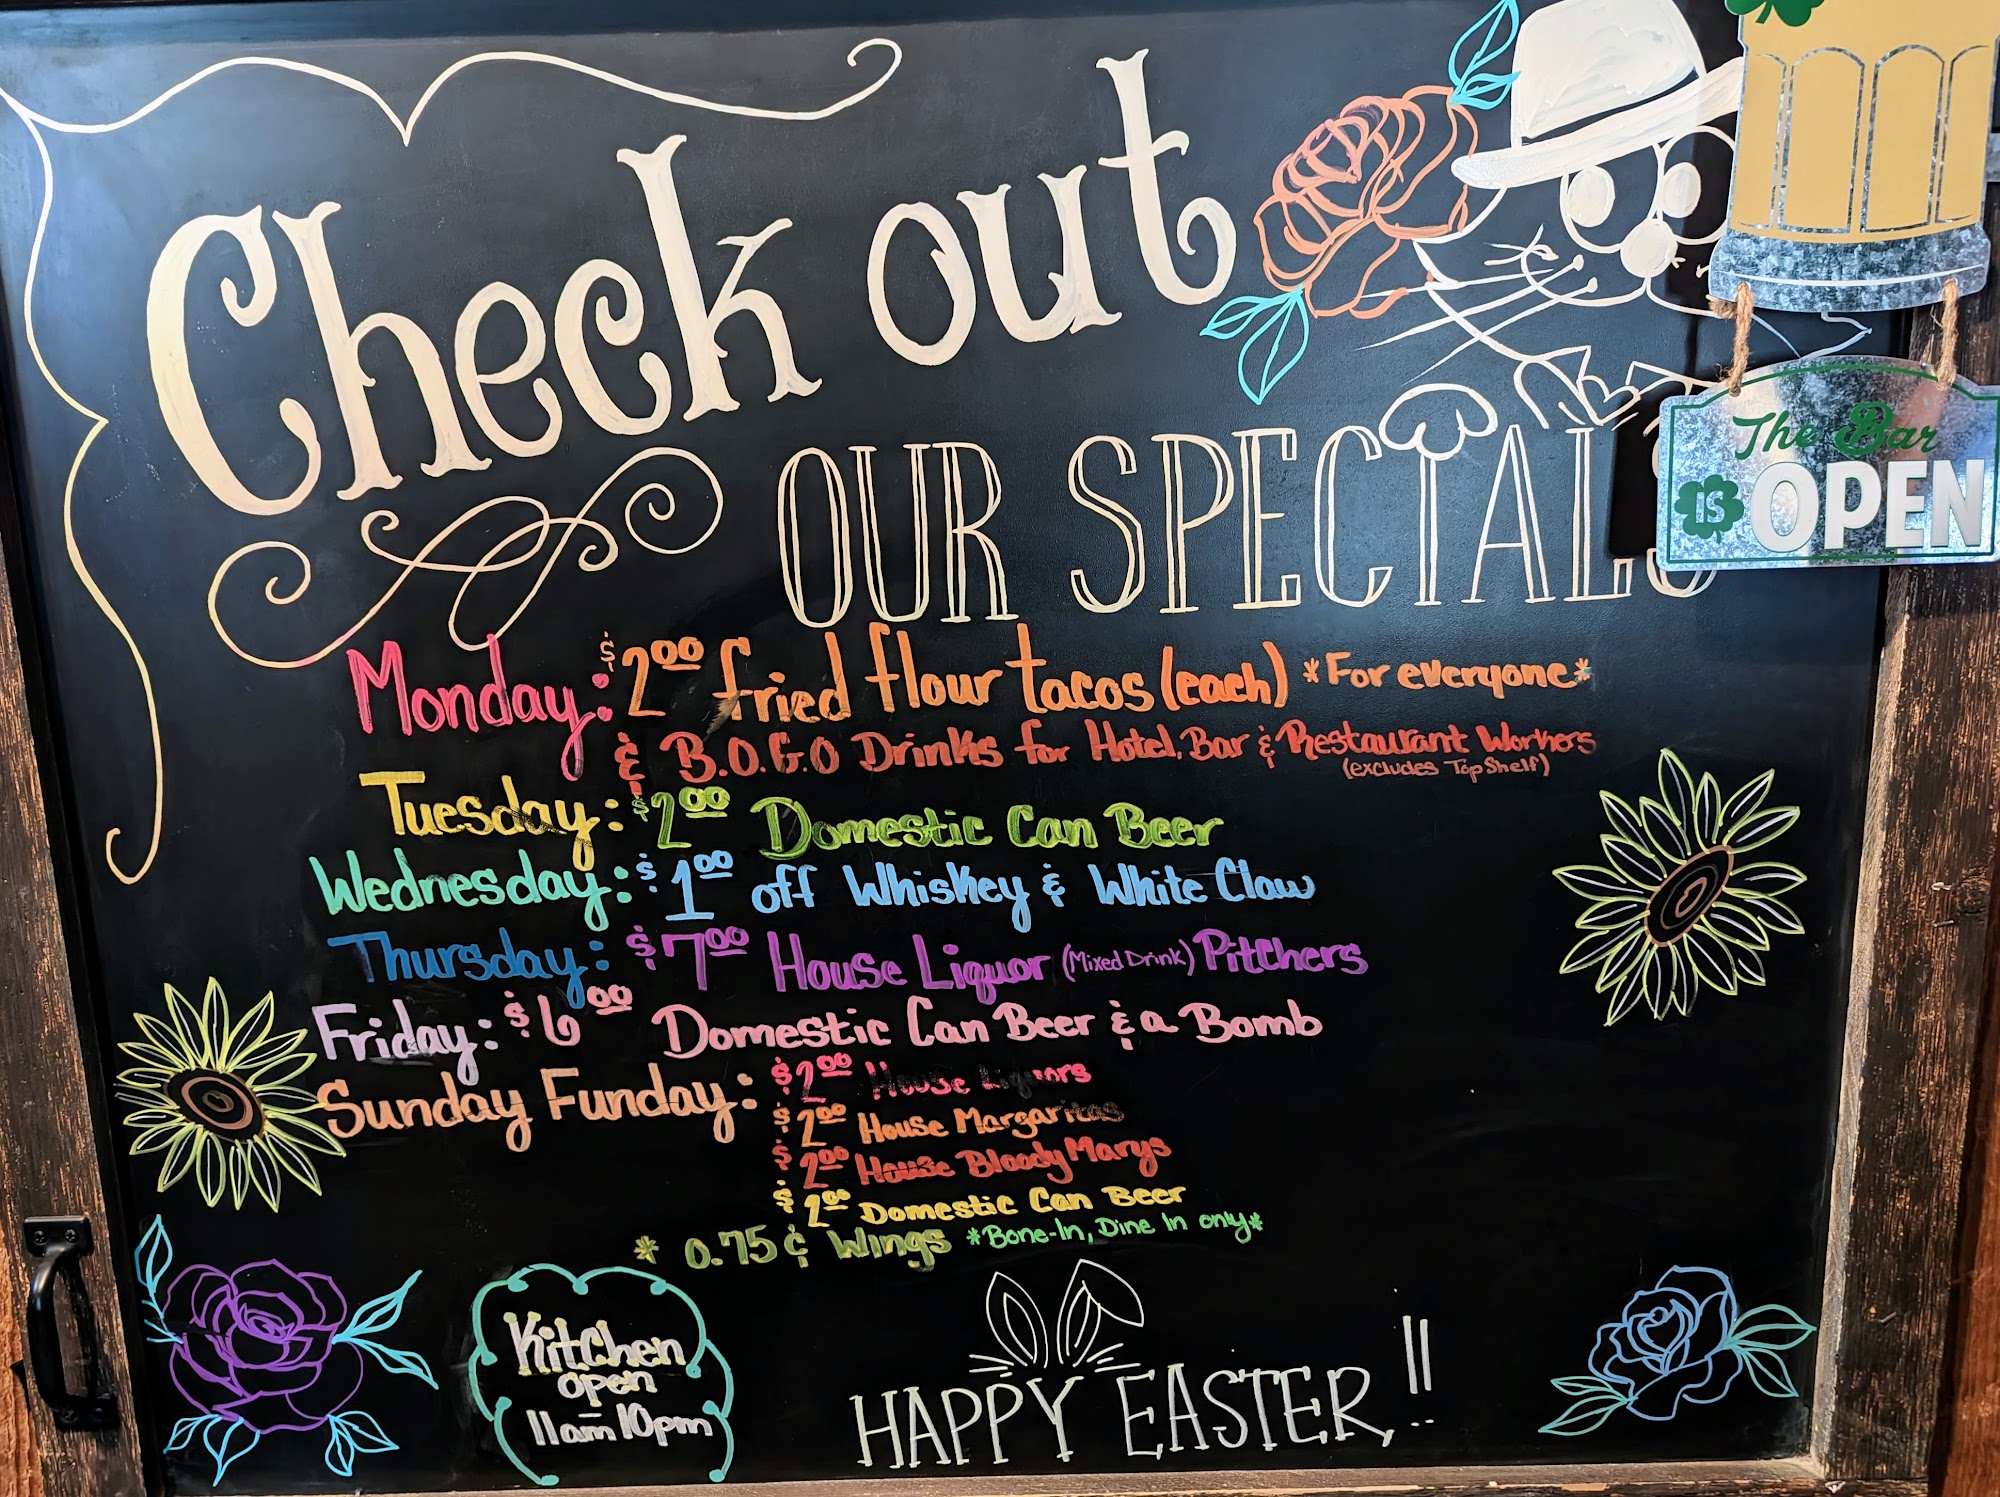 Check out
OUR SPECIALS
The Bar
IS OPEN
Monday: $2.00 fried flour tacos (each) *For everyone*
& B.O.G.O Drinks for Hotel, Bar & Restaurant Workers
(excludes Top Shelf)
Tuesday: $2.00 Domestic Can Beer
Wednesday: $1.00 off Whiskey & White Claw
Thursday: $7.00 House Liquor (Mixed Drink) Pitchers
Friday: $6.00 Domestic Can Beer & a Bomb
Sunday Funday: $2.00 House Liquors
$2.00 House Margaritas
$2.00 House Bloody Marys
$2.00 Domestic Can Beer
* 0.75¢ Wings *Bone-In, Dine In only*
Kitchen
open
11am-10pm
HAPPY EASTER!!